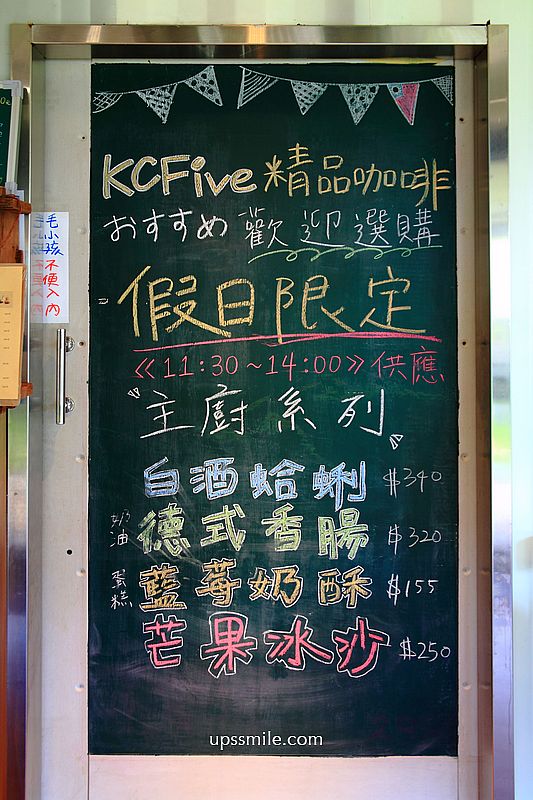 KCFive 精品咖啡
おすすめ 歡迎選購
假日限定
《11:30~14:00》供應
主廚系列
白酒蛤蜊 $340
德式香腸 $320
奶油
藍莓奶酥 $155
蛋糕
芒果冰沙 $250
毛小孩
不便入內
upssmile.com